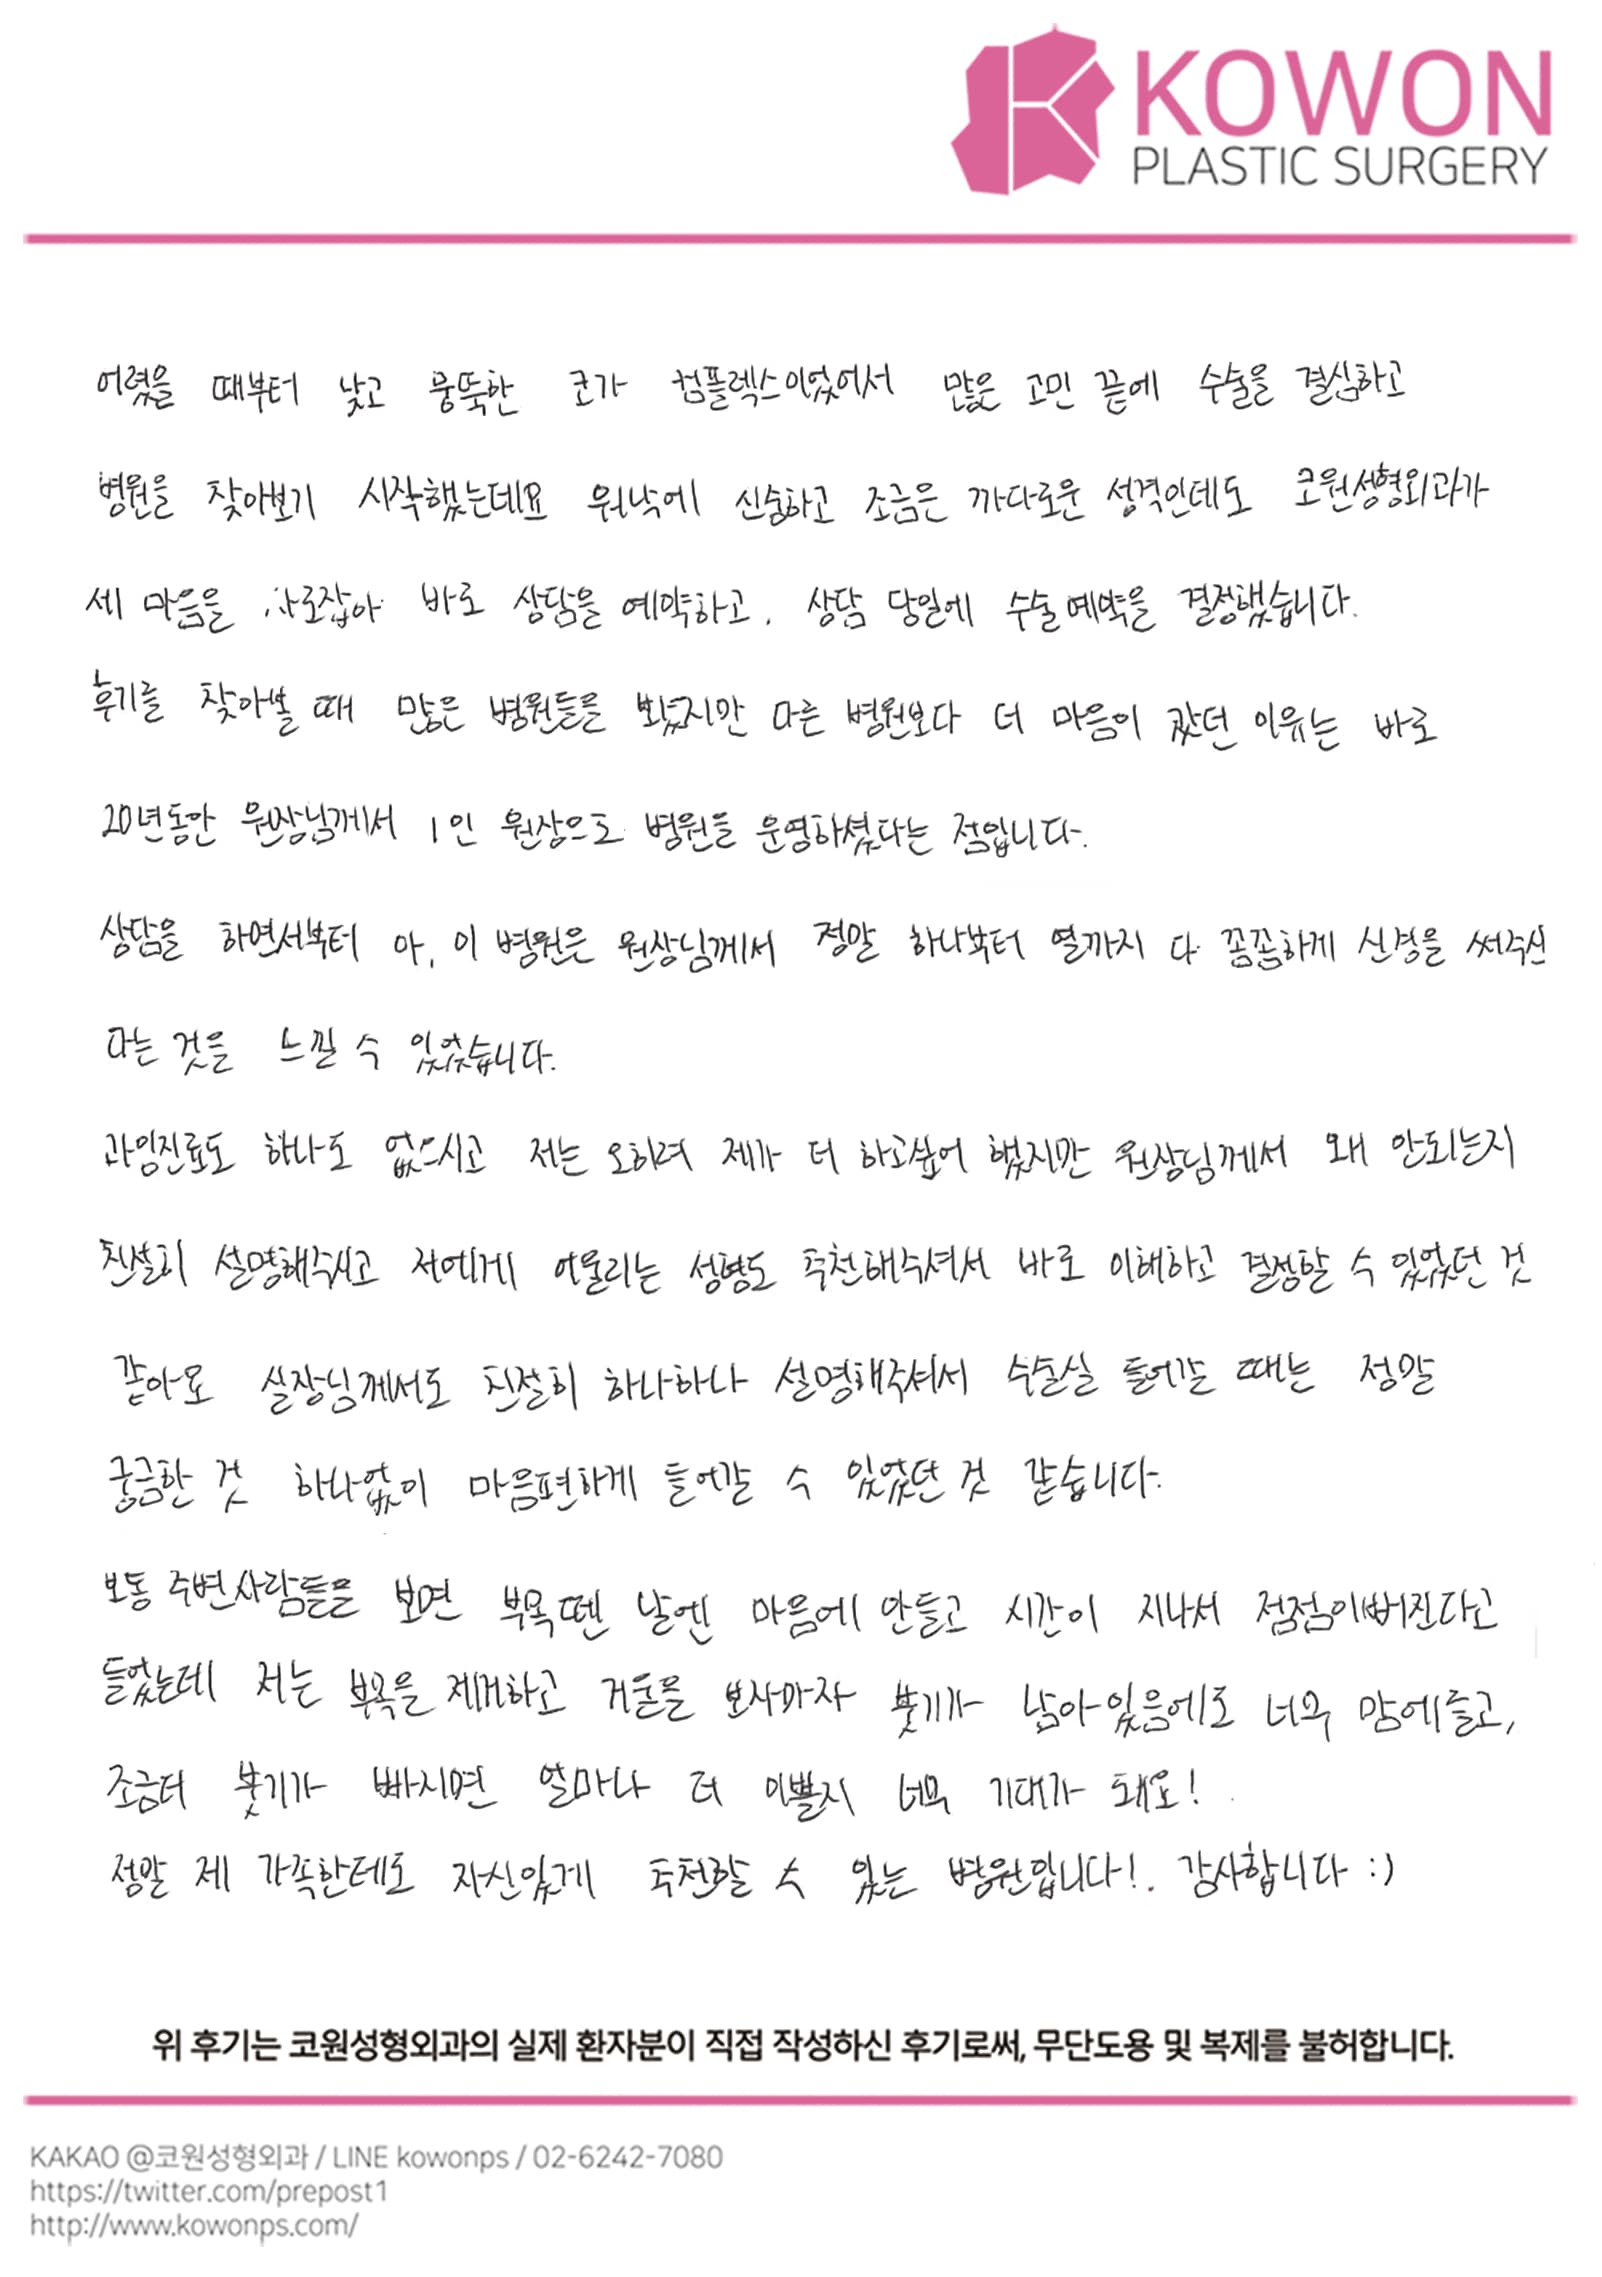 KOWON
PLASTIC SURGERY
어렸을 때부터 낮고 뭉뚝한 코가 컴플렉스이었어서 많은 고민 끝에 수술을 결심하고
병원을 찾아보기 시작했는데요 워낙에 신중하고 조금은 까다로운 성격인데도 코원성형외과가
제 마음을 사로잡아 바로 상담을 예약하고, 상담 당일에 수술예약을 결정했습니다.
후기를 찾아볼 때 많은 병원들을 봤지만 다른 병원보다 더 마음이 갔던 이유는 바로
20년동안 원장님께서 1인 원장으로 병원을 운영하셨다는 점입니다.
상담을 하면서부터 아, 이 병원은 원장님께서 정말 하나부터 열까지 다 꼼꼼하게 신경을 써주신
다는 것을 느낄 수 있었습니다.
과잉진료도 하나도 없으시고 저는 오히려 제가 더 하고싶어 했지만 원장님께서 왜 안되는지
친절히 설명해주시고 저에게 어울리는 성형도 추천해주셔서 바로 이해하고 결정할 수 있었던 것
같아요 실장님께서도 친절히 하나하나 설명해주셔서 수술실 들어갈 때는 정말
궁금한 것 하나없이 마음편하게 들어갈 수 있었던 것 같습니다.
보통 주변사람들을 보면 부목뗀 날엔 마음에 안들고 시간이 지나서 점점이뻐진다고
들었는데 저는 부목을 제거하고 거울을 보자마자 붓기가 남아있음에도 너무 맘에들고,
조금더 붓기가 빠지면 얼마나 더 이쁠지 너무 기대가 돼요!
정말 제 가족한테도 자신있게 추천할 수 있는 병원입니다!. 감사합니다 :)
위 후기는 코원성형외과의 실제 환자분이 직접 작성하신 후기로써, 무단도용 및 복제를 불허합니다.
KAKAO @코원성형외과 / LINE kowonps / 02-6242-7080
https://twitter.com/prepost1
http://www.kowonps.com/